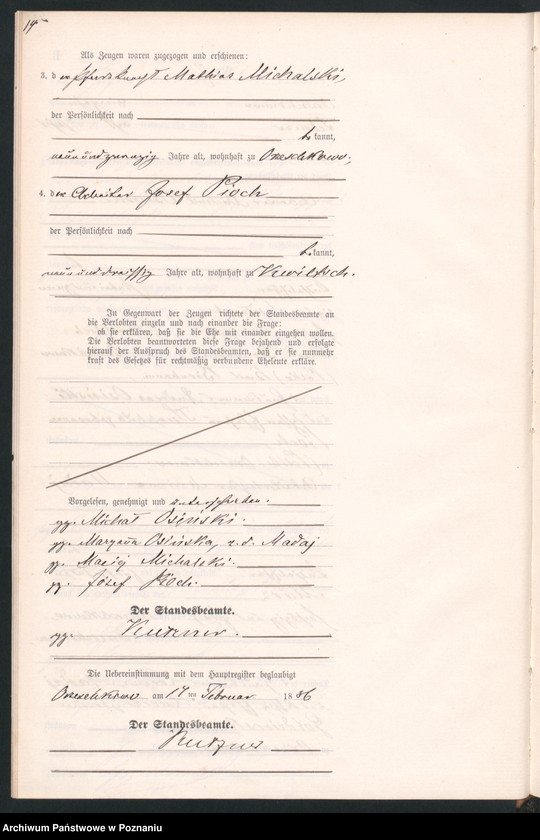 14
Als Zeugen waren zugezogen und erschienen:
3. der Pferdeknecht Mathias Michalski,
der Persönlichkeit nach
bekannt,
neunundzwanzig Jahre alt, wohnhaft zu Orzeschkowo;
4. der Arbeiter Josef Pioch
der Persönlichkeit nach
bekannt,
neununddreissig Jahre alt, wohnhaft zu Kwiltsch.
In Gegenwart der Zeugen richtete der Standesbeamte an
die Verlobten einzeln und nach einander die Frage:
ob sie erklären, daß sie die Ehe mit einander eingehen wollen.
Die Verlobten beantworteten diese Frage bejahend und erfolgte
hierauf der Ausspruch des Standesbeamten, daß er sie nunmehr
kraft des Gesetzes für rechtmäßig verbundene Eheleute erkläre.
Vorgelesen, genehmigt und unterschrieben.
gg. Michał Osiński.
gg. Maryanna Osińska, z. d. Madaj
gg. Maciej Michalski.
gg. Józef Pioch.
Der Standesbeamte.
gg. Kutzner.
Die Uebereinstimmung mit dem Hauptregister beglaubigt
Orzeschkowo am 14 ten Februar 1886
Der Standesbeamte.
Kutzner
Archiwum Państwowe w Poznaniu